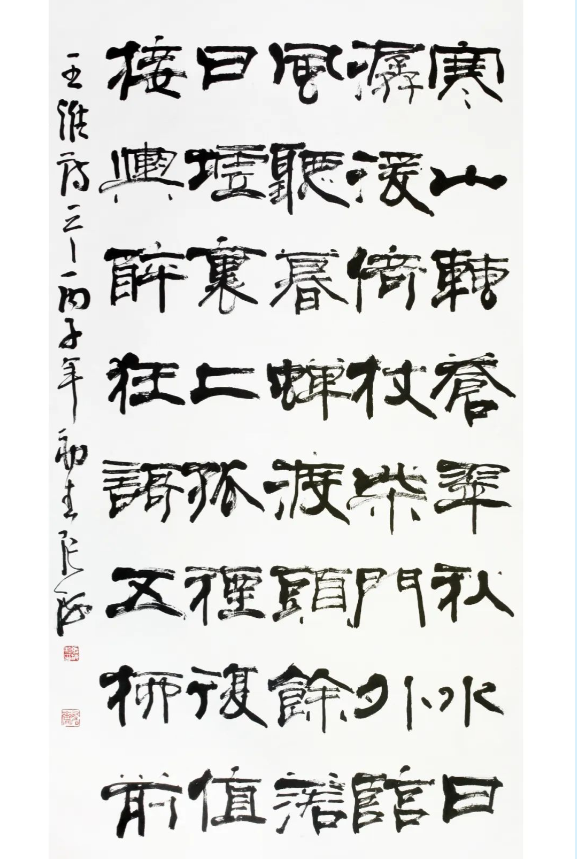 寒山轉蒼翠秋水日
潺湲倚杖柴門外臨
風聽暮蟬渡頭餘落
日墟裏上孤煙復值
接輿醉狂謌五柳前
王維詩丙子年初春張海